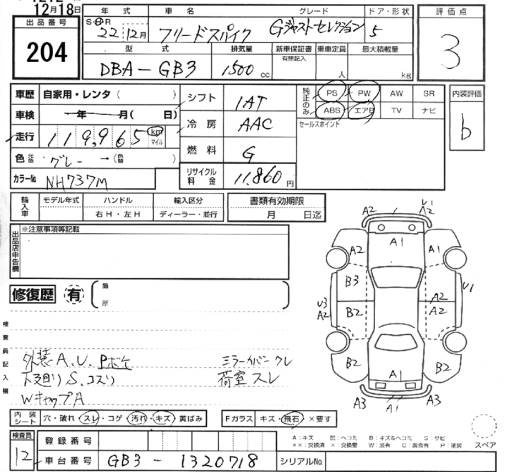 12月18日
出品番号
204
年式 車名 グレード ドア・形状
22年12月 フリードスパイク Gジャストセレクション 5
型式 排気量 新車保証書 乗車定員 最大積載量
有無記入
DBA-GB3 1500cc 人 kg
評価点
3
車歴 自家用・レンタ( )
車検 年 月( 日)
走行 119,965 km マイル
色 グレー
カラーNo NH737M
シフト 1AT
冷房 AAC
燃料 G
リサイクル料金 11,860円
純正のみ PS PW AW SR
ABS エアB TV ナビ
セールスポイント
内装評価
b
輸入車 モデル年式 ハンドル 輸入区分
右H・左H ディーラー・並行
書類有効期限
月 日迄
出品店申告欄
※注意事項等記載
修復歴 有
箇所
検査員記入欄
外装A.U.Pボケ ミラーイバンクレ
下廻りS.コスリ 荷室スレ
WキャップA
A2 A1 A2 U1
B3 A1 A2 U1
U3 A2 A2
B2 B2
A3 A1 A3
内装シート 穴・破れ・スレ・コゲ・汚れ・キズ・黄ばみ
Fガラス キズ・飛石・×要す
検査員
12
登録番号
車台番号 GB3-1320718
シリアルNo.
スペア